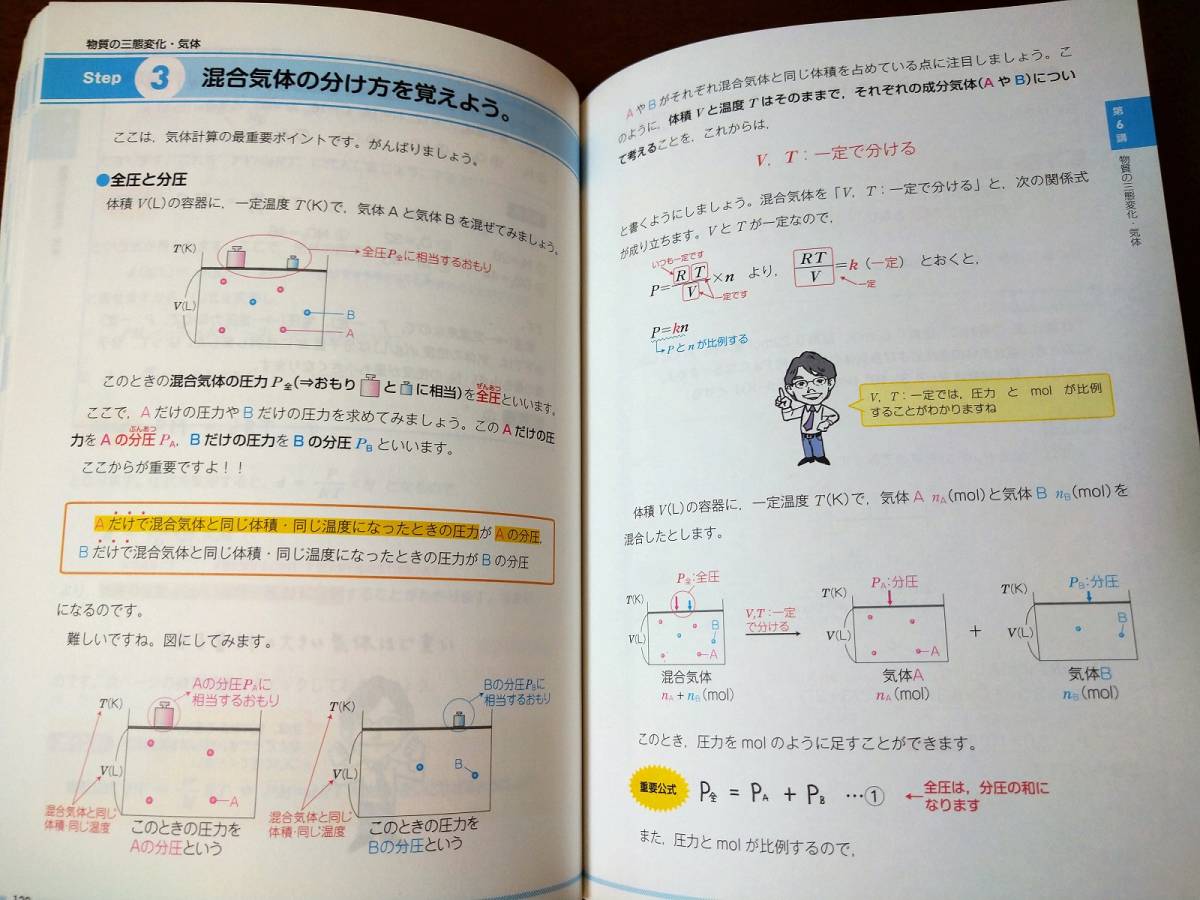 物質の三態変化・気体
Step 3 混合気体の分け方を覚えよう。
ここは，気体計算の最重要ポイントです。がんばりましょう。
●全圧と分圧
体積 V(L)の容器に，一定温度 T(K)で，気体 A と気体 B を混ぜてみましょう。
T(K)
全圧P全に相当するおもり
V(L)
B
A
このときの混合気体の圧力 P全(⇒おもり と に相当)を全圧といいます。
ぜんあつ
ここで，A だけの圧力や B だけの圧力を求めてみましょう。この A だけの圧
力を A の分圧 PA，B だけの圧力を B の分圧 PB といいます。
ぶんあつ
ここからが重要ですよ！！
A だけで混合気体と同じ体積・同じ温度になったときの圧力が A の分圧，
B だけで混合気体と同じ体積・同じ温度になったときの圧力が B の分圧
になるのです。
難しいですね。図にしてみます。
Aの分圧PAに
相当するおもり
T(K)
V(L)
A
混合気体と同じ
体積・同じ温度
このときの圧力を
Aの分圧という
Bの分圧PBに
相当するおもり
T(K)
V(L)
B
混合気体と同じ
体積・同じ温度
このときの圧力を
Bの分圧という
A や B がそれぞれ混合気体と同じ体積を占めている点に注目しましょう。こ
のように，体積 V と温度 T はそのままで，それぞれの成分気体(A や B)につい
て考えることを，これからは，
V，T：一定で分ける
と書くようにしましょう。混合気体を「V，T：一定で分ける」と，次の関係式
が成り立ちます。V と T が一定なので，
いつも一定です
P=RT/V×n より，RT/V=k（一定） とおくと，
一定です
一定
P=kn
PとnがE比例する
V，T：一定では，圧力 と mol が比例
することがわかりますね
体積 V(L)の容器に，一定温度 T(K)で，気体 A nA(mol)と気体 B nB(mol)を
混合したとします。
P全：全圧
T(K)
V(L)
B
A
混合気体
nA＋nB(mol)
V,T：一定
で分ける
PA：分圧
T(K)
V(L)
A
気体A
nA(mol)
＋
PB：分圧
T(K)
V(L)
B
気体B
nB(mol)
このとき，圧力を mol のように足すことができます。
重要公式 P全 = PA + PB …① ←全圧は，分圧の和に
なります
また，圧力と mol が比例するので，
第6講
物質の三態変化・気体